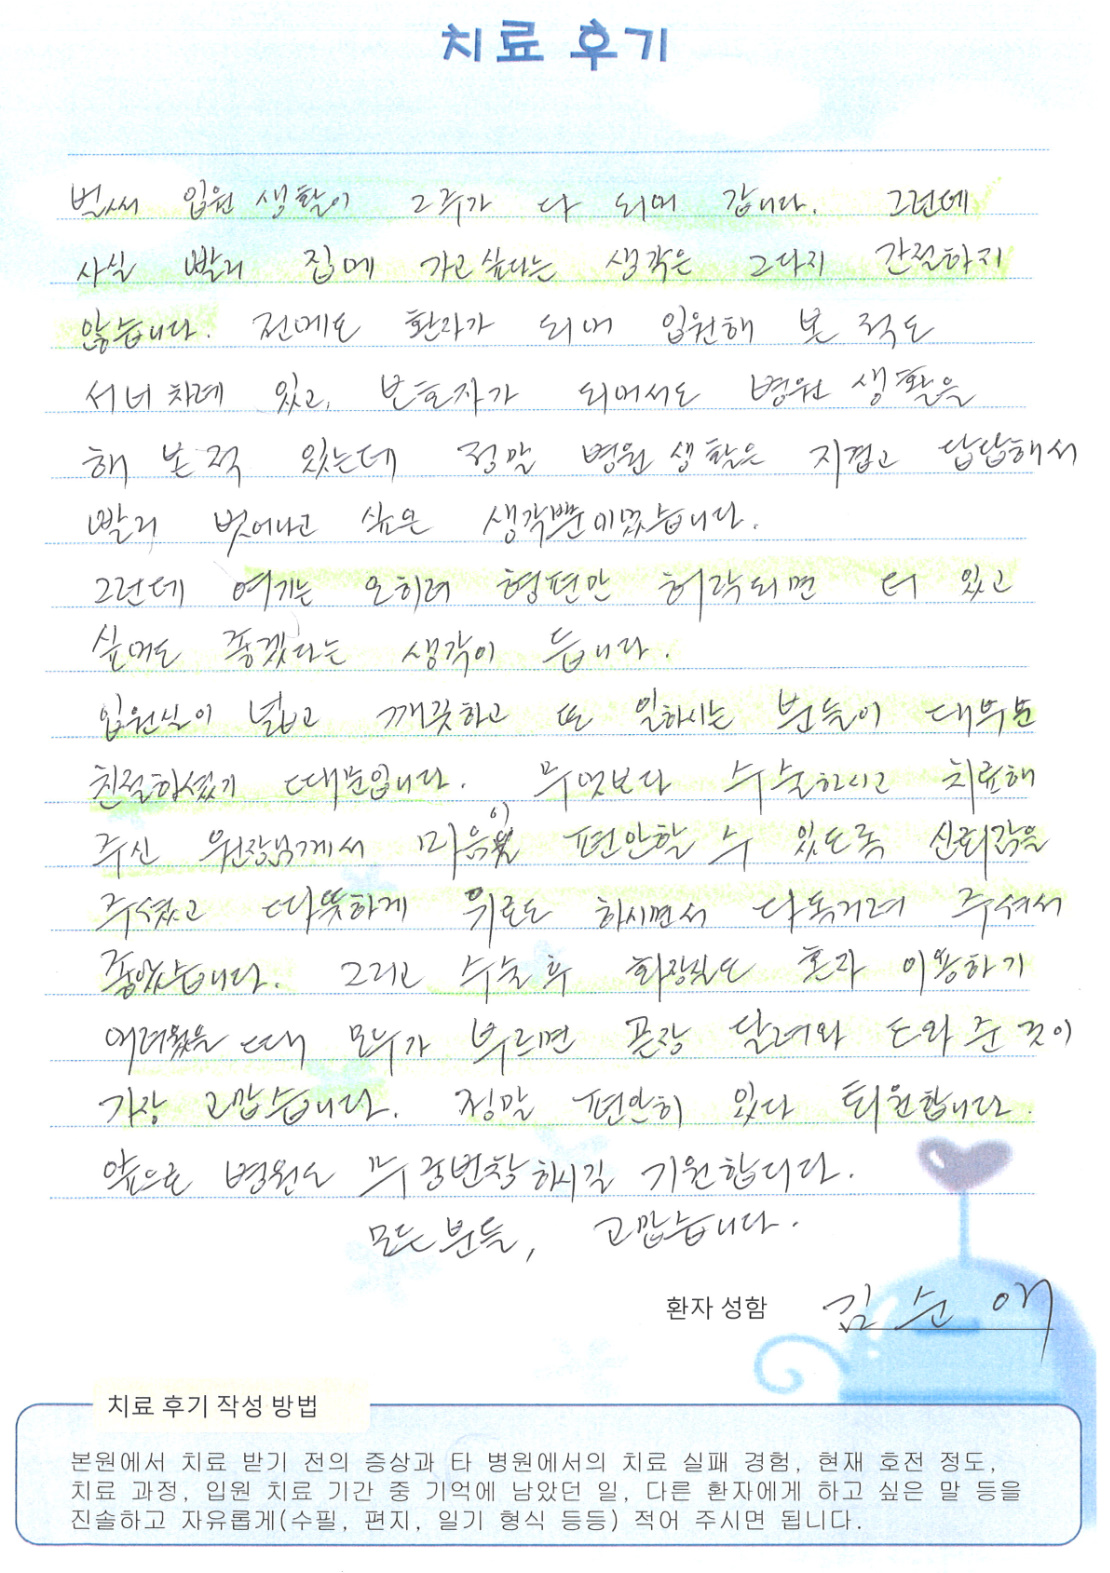 치료 후기
벌써 입원 생활이 2주가 다 되어 갑니다. 그런데
사실 빨리 집에 가고 싶다는 생각은 그다지 간절하지
않습니다. 전에도 환자가 되어 입원해 본 적도
서너 차례 있고, 보호자가 되어서도 병원 생활을
해 본 적 있는데 정말 병원 생활은 지겹고 답답해서
빨리 벗어나고 싶은 생각뿐이었습니다.
그런데 여기는 오히려 형편만 허락되면 더 있고
싶어도 좋겠다는 생각이 듭니다.
입원실이 넓고 깨끗하고 또 일하시는 분들이 대부분
친절하셨기 때문입니다. 무엇보다 수술하고 치료해
주신 원장님께서 마음이 편안할 수 있도록 신뢰감을
주셨고 따뜻하게 위로도 하시면서 다독거려 주셔서
좋았습니다. 그리고 수술 후 화장실도 혼자 이용하기
어려웠을 때 모두가 부르면 곧장 달려와 도와 준 것이
가장 고맙습니다. 정말 편안히 있다 퇴원합니다.
앞으로 병원도 무궁번창하시길 기원합니다.
모든 분들, 고맙습니다.
환자 성함 김순애
치료 후기 작성 방법
본원에서 치료 받기 전의 증상과 타 병원에서의 치료 실패 경험, 현재 호전 정도,
치료 과정, 입원 치료 기간 중 기억에 남았던 일, 다른 환자에게 하고 싶은 말 등을
진솔하고 자유롭게(수필, 편지, 일기 형식 등등) 적어 주시면 됩니다.